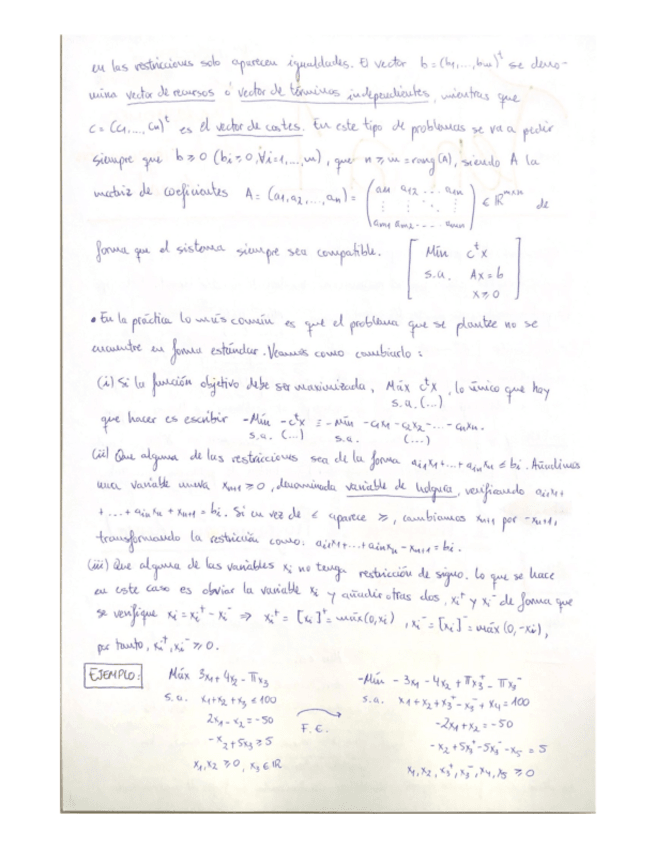 en las restricciones solo aparecen igualdades. El vector b=(b₁,...,bₘ)ᵗ se deno-
mina vector de recursos ó vector de términos independientes, mientras que
c=(c₁,...,cₙ)ᵗ es el vector de costes. En este tipo de problemas se va a pedir
siempre que b≥0 (bᵢ≥0, ∀i=1,...,m), que n≥m=rang(A), siendo A la
matriz de coeficientes A=(a₁,a₂,...,aₙ)= (a₁₁ a₁₂ ... a₁ₙ ⋮ ⋮ ⋱ ⋮ aₘ₁ aₘ₂ .... aₘₙ) ∈ ℝᵐˣⁿ de
forma que el sistema siempre sea compatible. [ Mín cᵗx
s.a. Ax=b
x≥0 ]
• En la práctica lo más común es que el problema que se plantee no se
encuentre en forma estándar. Veamos como cambiarlo:
(i) Si la función objetivo debe ser maximizada, Máx cᵗx, lo único que hay
s.a. (...)
que hacer es escribir -Mín -cᵗx ≡ -mín -c₁x₁ -c₂x₂ -...-cₙxₙ.
s.a. (...) s.a. (...)
(ii) Que alguna de las restricciones sea de la forma aᵢ₁x₁+...+aᵢₙxₙ ≤ bᵢ. Añadimos
una variable nueva xₙ₊₁≥0, denominada variable de holgura, verificando aᵢ₁x₁+
+...+aᵢₙxₙ+xₙ₊₁=bᵢ. Si en vez de ≤ aparece ≥, cambiamos xₙ₊₁ por -xₙ₊₁,
transformando la restricción como: aᵢ₁x₁+...+aᵢₙxₙ-xₙ₊₁=bᵢ.
(iii) Que alguna de las variables xᵢ no tenga restricción de signo. Lo que se hace
en este caso es obviar la variable xᵢ y añadir otras dos, xᵢ⁺ y xᵢ⁻ de forma que
se verifique xᵢ=xᵢ⁺-xᵢ⁻ ⇒ xᵢ⁺=[xᵢ]⁺=máx(0,xᵢ), xᵢ⁻=[xᵢ]⁻=máx(0,-xᵢ),
por tanto, xᵢ⁺,xᵢ⁻≥0.
EJEMPLO: Máx 3x₁+4x₂-πx₃
s.a. x₁+x₂+x₃≤100
2x₁-x₂=-50
-x₂+5x₃≥5
x₁,x₂≥0, x₃∈ℝ
F.E.
-Mín -3x₁-4x₂+πx₃⁺-πx₃⁻
s.a. x₁+x₂+x₃⁺-x₃⁻+x₄=100
-2x₁+x₂=-50
-x₂+5x₃⁺-5x₃⁻-x₅=5
x₁,x₂,x₃⁺,x₃⁻,x₄,x₅≥0